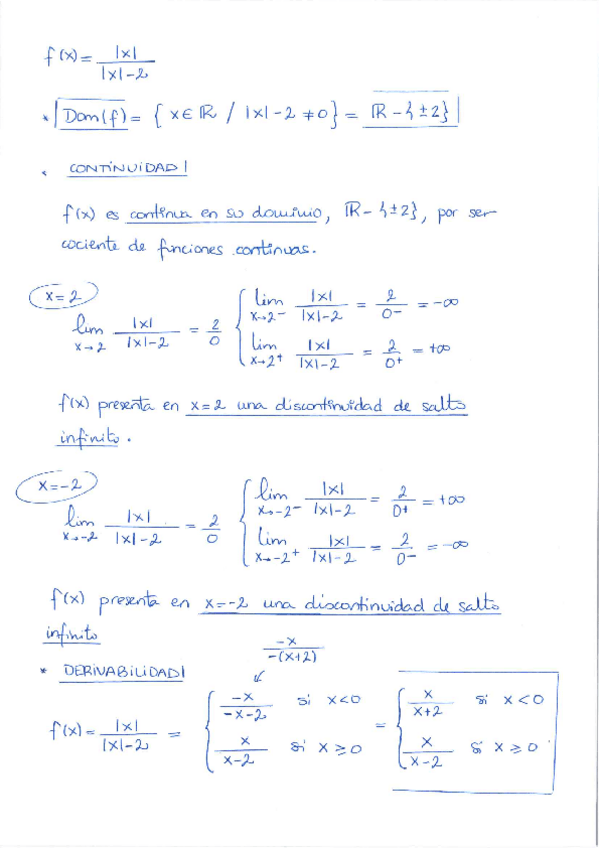 f(x) = |x| / (|x|-2)
* Dom(f) = { x ∈ ℝ / |x|-2 ≠ 0 } = ℝ - {±2}
• CONTINUIDAD
f(x) es continua en su dominio, ℝ - {±2}, por ser
cociente de funciones continuas.
x=2
lim x→2 |x| / (|x|-2) = 2/0 { lim x→2⁻ |x| / (|x|-2) = 2/0⁻ = -∞
lim x→2⁺ |x| / (|x|-2) = 2/0⁺ = +∞
f(x) presenta en x=2 una discontinuidad de salto
infinito.
x=-2
lim x→-2 |x| / (|x|-2) = 2/0 { lim x→-2⁻ |x| / (|x|-2) = 2/0⁺ = +∞
lim x→-2⁺ |x| / (|x|-2) = 2/0⁻ = -∞
f(x) presenta en x=-2 una discontinuidad de salto
infinito
-x / -(x+2)
* DERIVABILIDAD
f(x) = |x| / (|x|-2) = { -x / (-x-2) si x<0 = { x / (x+2) si x<0
x / (x-2) si x ≥ 0 x / (x-2) si x ≥ 0